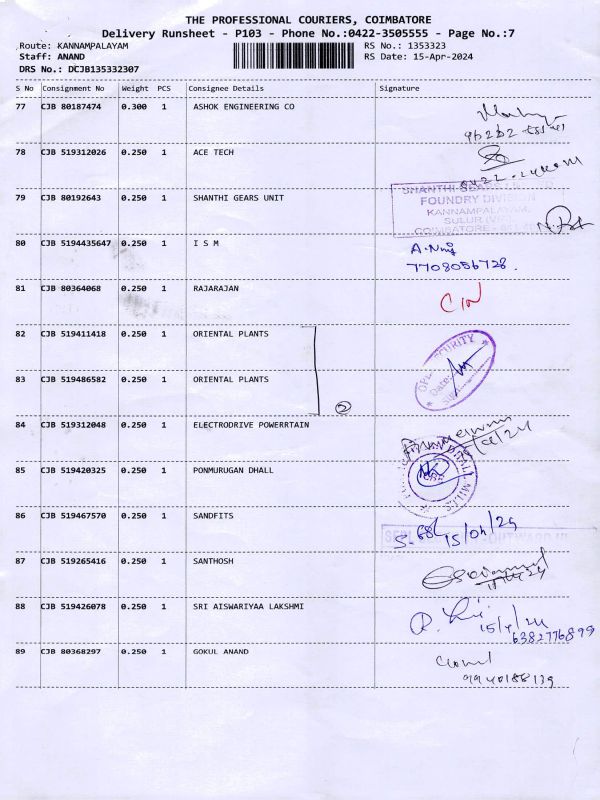 THE PROFESSIONAL COURIERS, COIMBATORE
Delivery Runsheet - P103 - Phone No.:0422-3505555 - Page No.:7
Route: KANNAMPALAYAM
RS No.: 1353323
Staff: ANAND
RS Date: 15-Apr-2024
DRS No.: DCJB135332307
S No Consignment No Weight PCS Consignee Details Signature
77 CJB 80187474 0.300 1 ASHOK ENGINEERING CO
78 CJB 519312026 0.250 1 ACE TECH
79 CJB 80192643 0.250 1 SHANTHI GEARS UNIT
SHANTHI
FOUNDRY DIVISION
KANNAMPALAYAM,
SULUR
COIMBATORE
80 CJB 5194435647 0.250 1 I S M
7708056728.
81 CJB 80364068 0.250 1 RAJARAJAN
82 CJB 519411418 0.250 1 ORIENTAL PLANTS
SECURITY
83 CJB 519486582 0.250 1 ORIENTAL PLANTS
Date:
2
84 CJB 519312048 0.250 1 ELECTRODRIVE POWERRTAIN
85 CJB 519420325 0.250 1 PONMURUGAN DHALL
DHALL MILLS
86 CJB 519467570 0.250 1 SANDFITS
15/04/24
87 CJB 519265416 0.250 1 SANTHOSH
88 CJB 519426078 0.250 1 SRI AISWARIYAA LAKSHMI
15/4/24
6382776899
89 CJB 80368297 0.250 1 GOKUL ANAND
9940188139